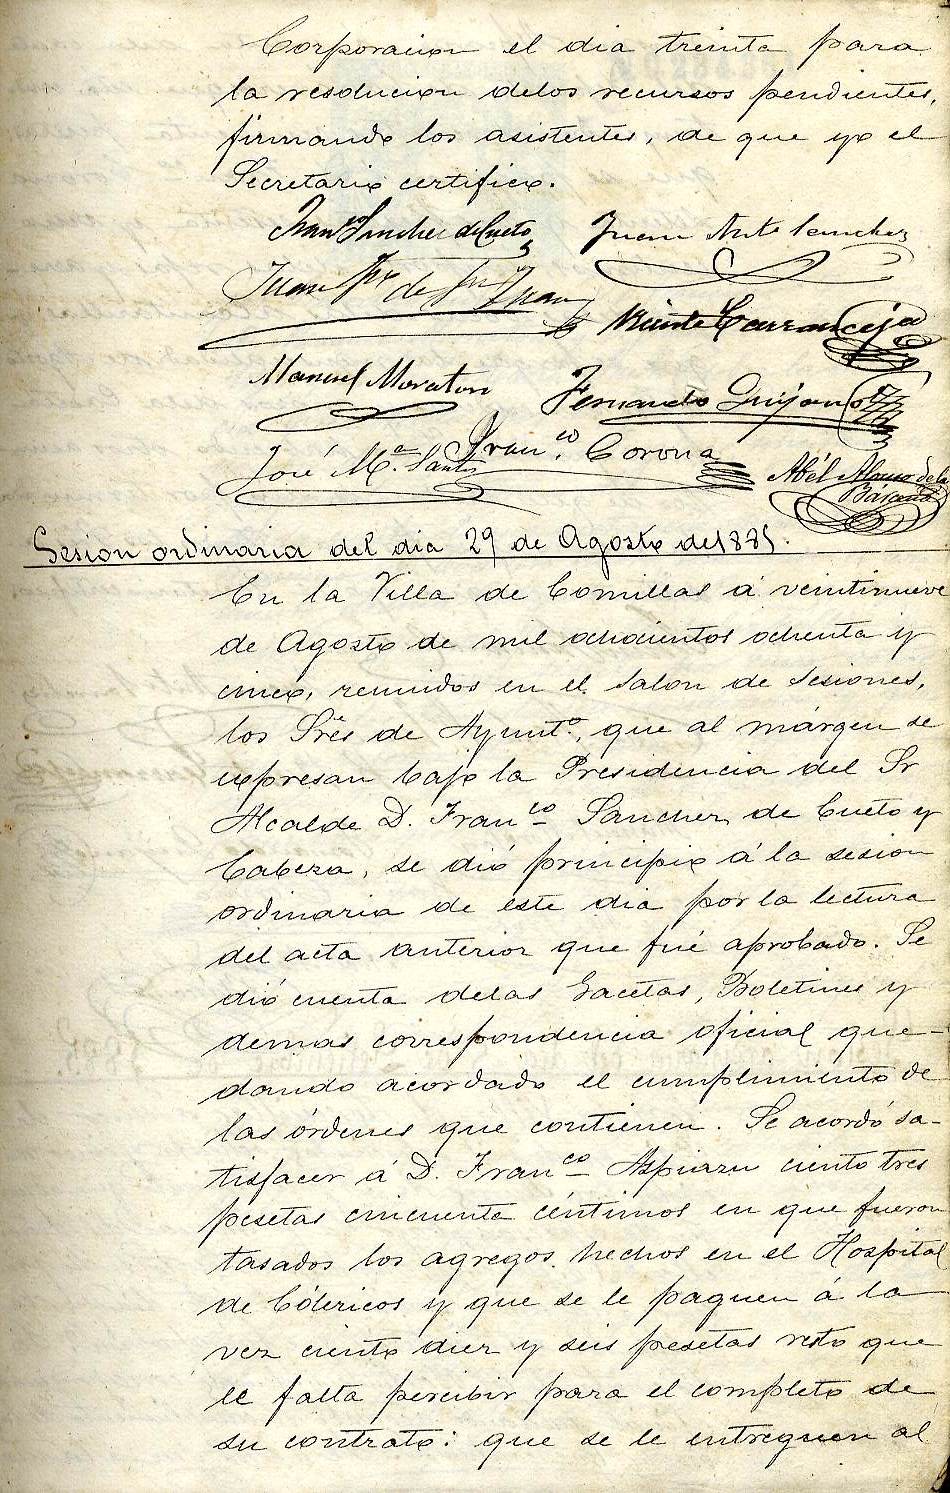 Corporacion el dia treinta para
la resolucion delos recursos pendientes,
firmando los asistentes, de que yo el
Secretario certifico.
Franco Sanchez de Cueto Juan Ante Sanchez
Juan de Juan
Vicente Carranceja
Manuel Moraton Fernando Quijano
José Ma. Santos Franco. Corona Abél Alonso de la
Bárcena
Sesion ordinaria del dia 29 de Agosto de 1885.
En la Villa de Comillas á veintinueve
de Agosto de mil ochocientos ochenta y
cinco, reunidos en el salon de sesiones,
los Sres de Ayunto, que al márgen se
expresan bajo la Presidencia del Sr
Alcalde D. Franco Sanchez de Cueto y
Cabeza, se dió principio á la sesion
ordinaria de este dia por la lectura
del acta anterior que fué aprobado. Se
dió cuenta delas Gacetas, Boletines y
demas correspondencia oficial que-
dando acordado el cumplimiento de
las órdenes que contienen. Se acordó sa-
tisfacer á D. Franco Aspiazu ciento tres
pesetas cincuenta céntimos en que fueron
tasados los agregos hechos en el Hospital
de Cólericos y que se le paguen á la
vez ciento diez y seis pesetas resto que
le falta percibir para el completo de
su contrato: que se le entreguen al